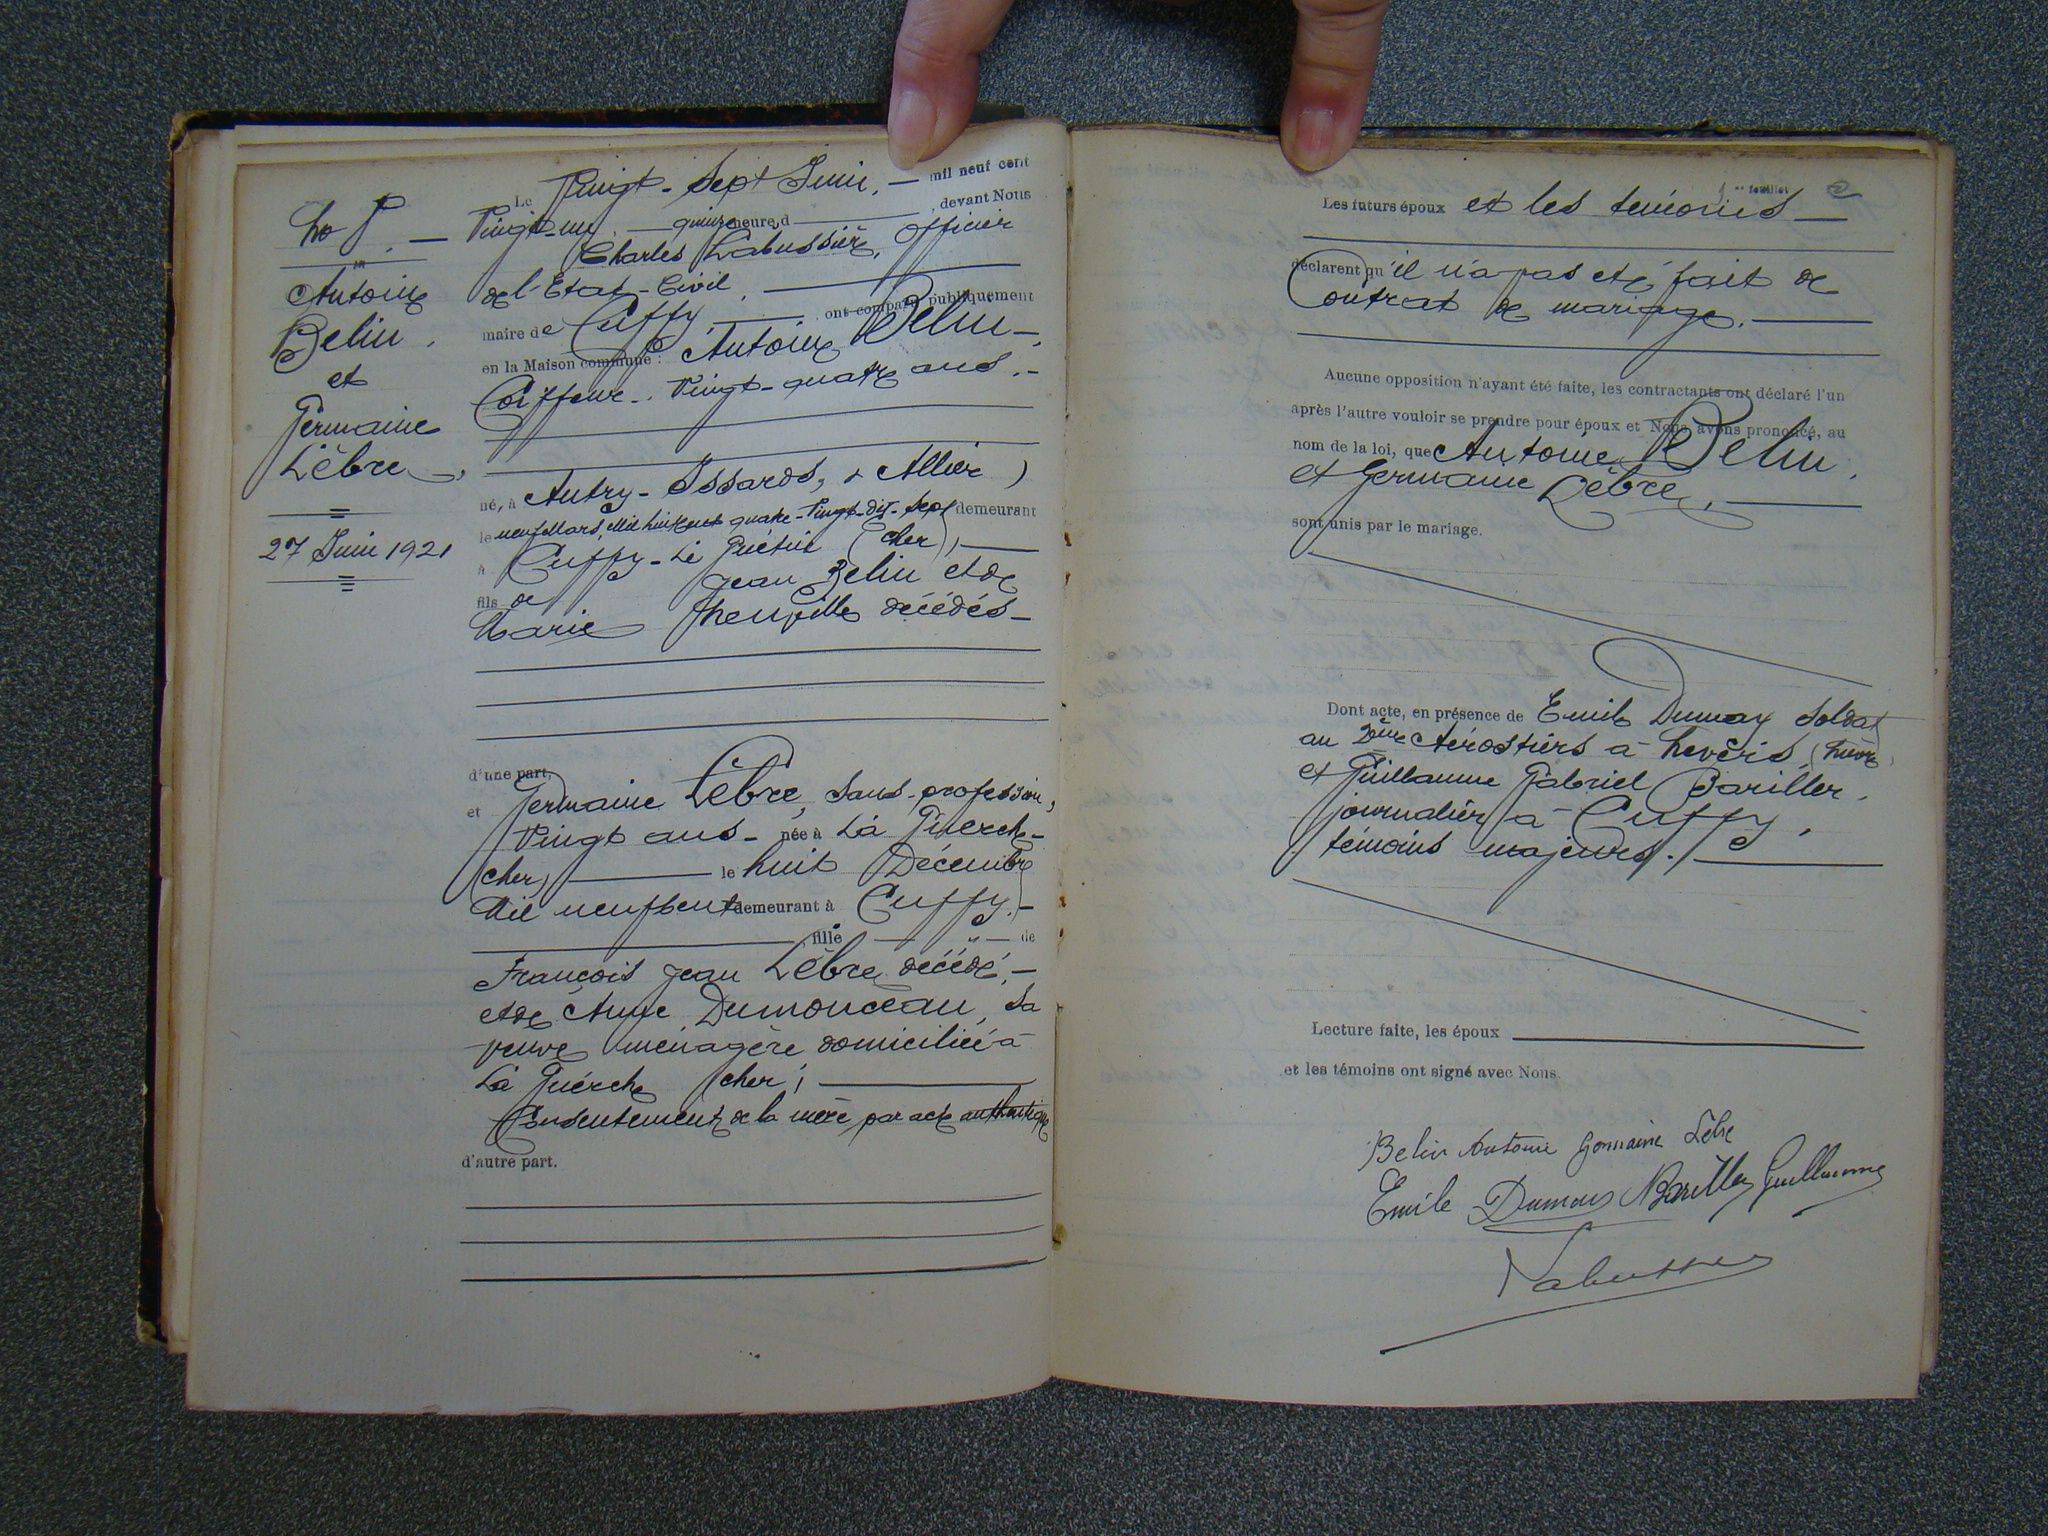 No 8.
Antoine
Belin.
et
Germaine
Lèbre
27 Juin 1921
Le Vingt-Sept Juin, mil neuf cent
Vingt-un quinze heure d devant Nous
Charles Labussière, Officier
de l'Etat-Civil,
maire de Cuffy, ont comparu publiquement
en la Maison commune : Antoine Belin,
Coiffeur. Vingt-quatre ans.
né, à Autry-Issards, (Allier)
le neuf Mars, Mil huit cent quatre-Vingt-dix-Sept demeurant
à Cuffy-Le Guétin (Cher),
fils de Jean Belin et de
Marie décédés
d'une part,
et Germaine Lèbre, Sans-profession,
Vingt ans née à La Guerche
(Cher) le huit Décembre
Mil neuf Cent demeurant à Cuffy.
fille de
François Jean Lèbre, décédé,
et de Anne Dumonceau, Sa
veuve ménagère domiciliée à
La Guerche (Cher),
Consentement de la mère par acte authentique
d'autre part.
1er feuillet
Les futurs époux et les témoins
déclarent qu'il n'a pas été fait de
Contrat de mariage.
Aucune opposition n'ayant été faite, les contractants ont déclaré l'un
après l'autre vouloir se prendre pour époux et Nous avons prononcé, au
nom de la loi, que Antoine Belin,
et Germaine Lèbre,
sont unis par le mariage.
Dont acte, en présence de Emile Dumay Soldat
au 2ème Aérostiers à Nevers, (Nièvre)
et Guillaume Gabriel Bariller,
journalier à Cuffy,
témoins majeurs./.
Lecture faite, les époux
et les témoins ont signé avec Nous.
Belin Antoine Germaine Lèbre
Emile Barille Guillaume
Labussière